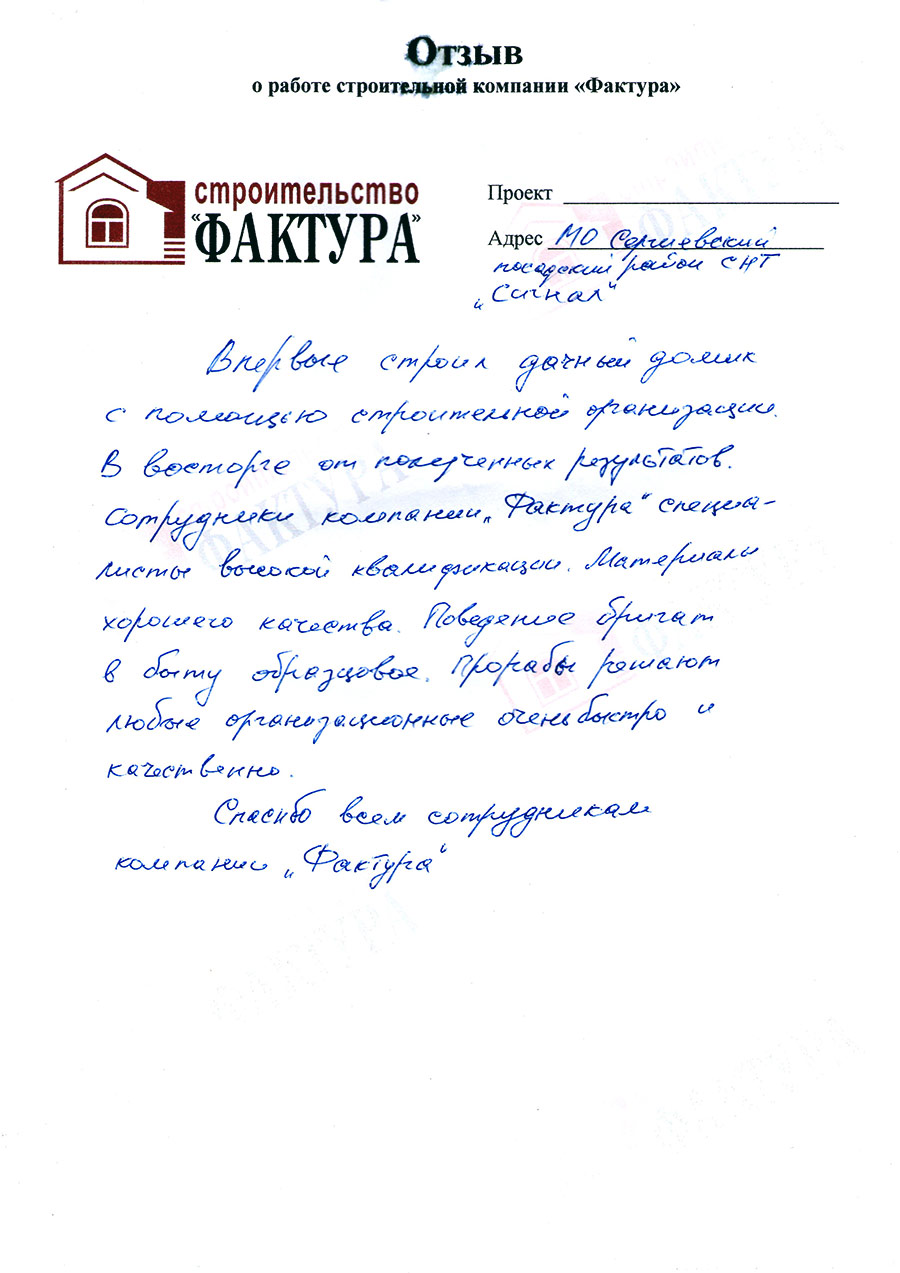 Отзыв
о работе строительной компании «Фактура»
строительство
"ФАКТУРА"
Проект
Адрес МО Сергиевский
посадский район СНТ
„Сигнал“
Впервые строил дачный домик
с помощью строительной организации.
В восторге от полученных результатов.
Сотрудники компании „Фактура“ специа-
листы высокой квалификации. Материалы
хорошего качества. Поведение бригат
в быту образцовое. Прорабы решают
любые организационные очень быстро и
качественно.
Спасибо всем сотрудникам
компании „Фактура“